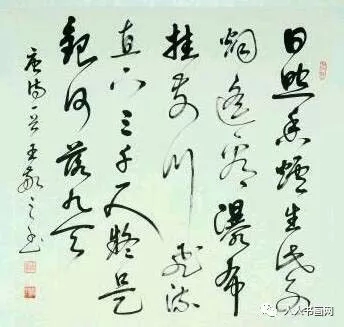 日照香爐生紫
烟遥看瀑布
挂前川飛流
直下三千尺疑是
銀河落九天
唐诗一首王之书
人人书画网